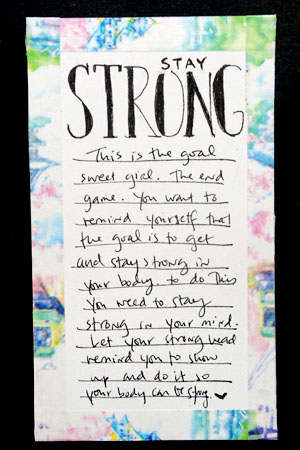 STAY
STRONG
This is the goal
sweet girl. The end
game. You want to
remind yourself that
the goal is to get
and stay strong in
your body. to do This
you need to stay
strong in your mind.
Let your strong head
remind you to show
up and do it so
your body can be strong. ♥